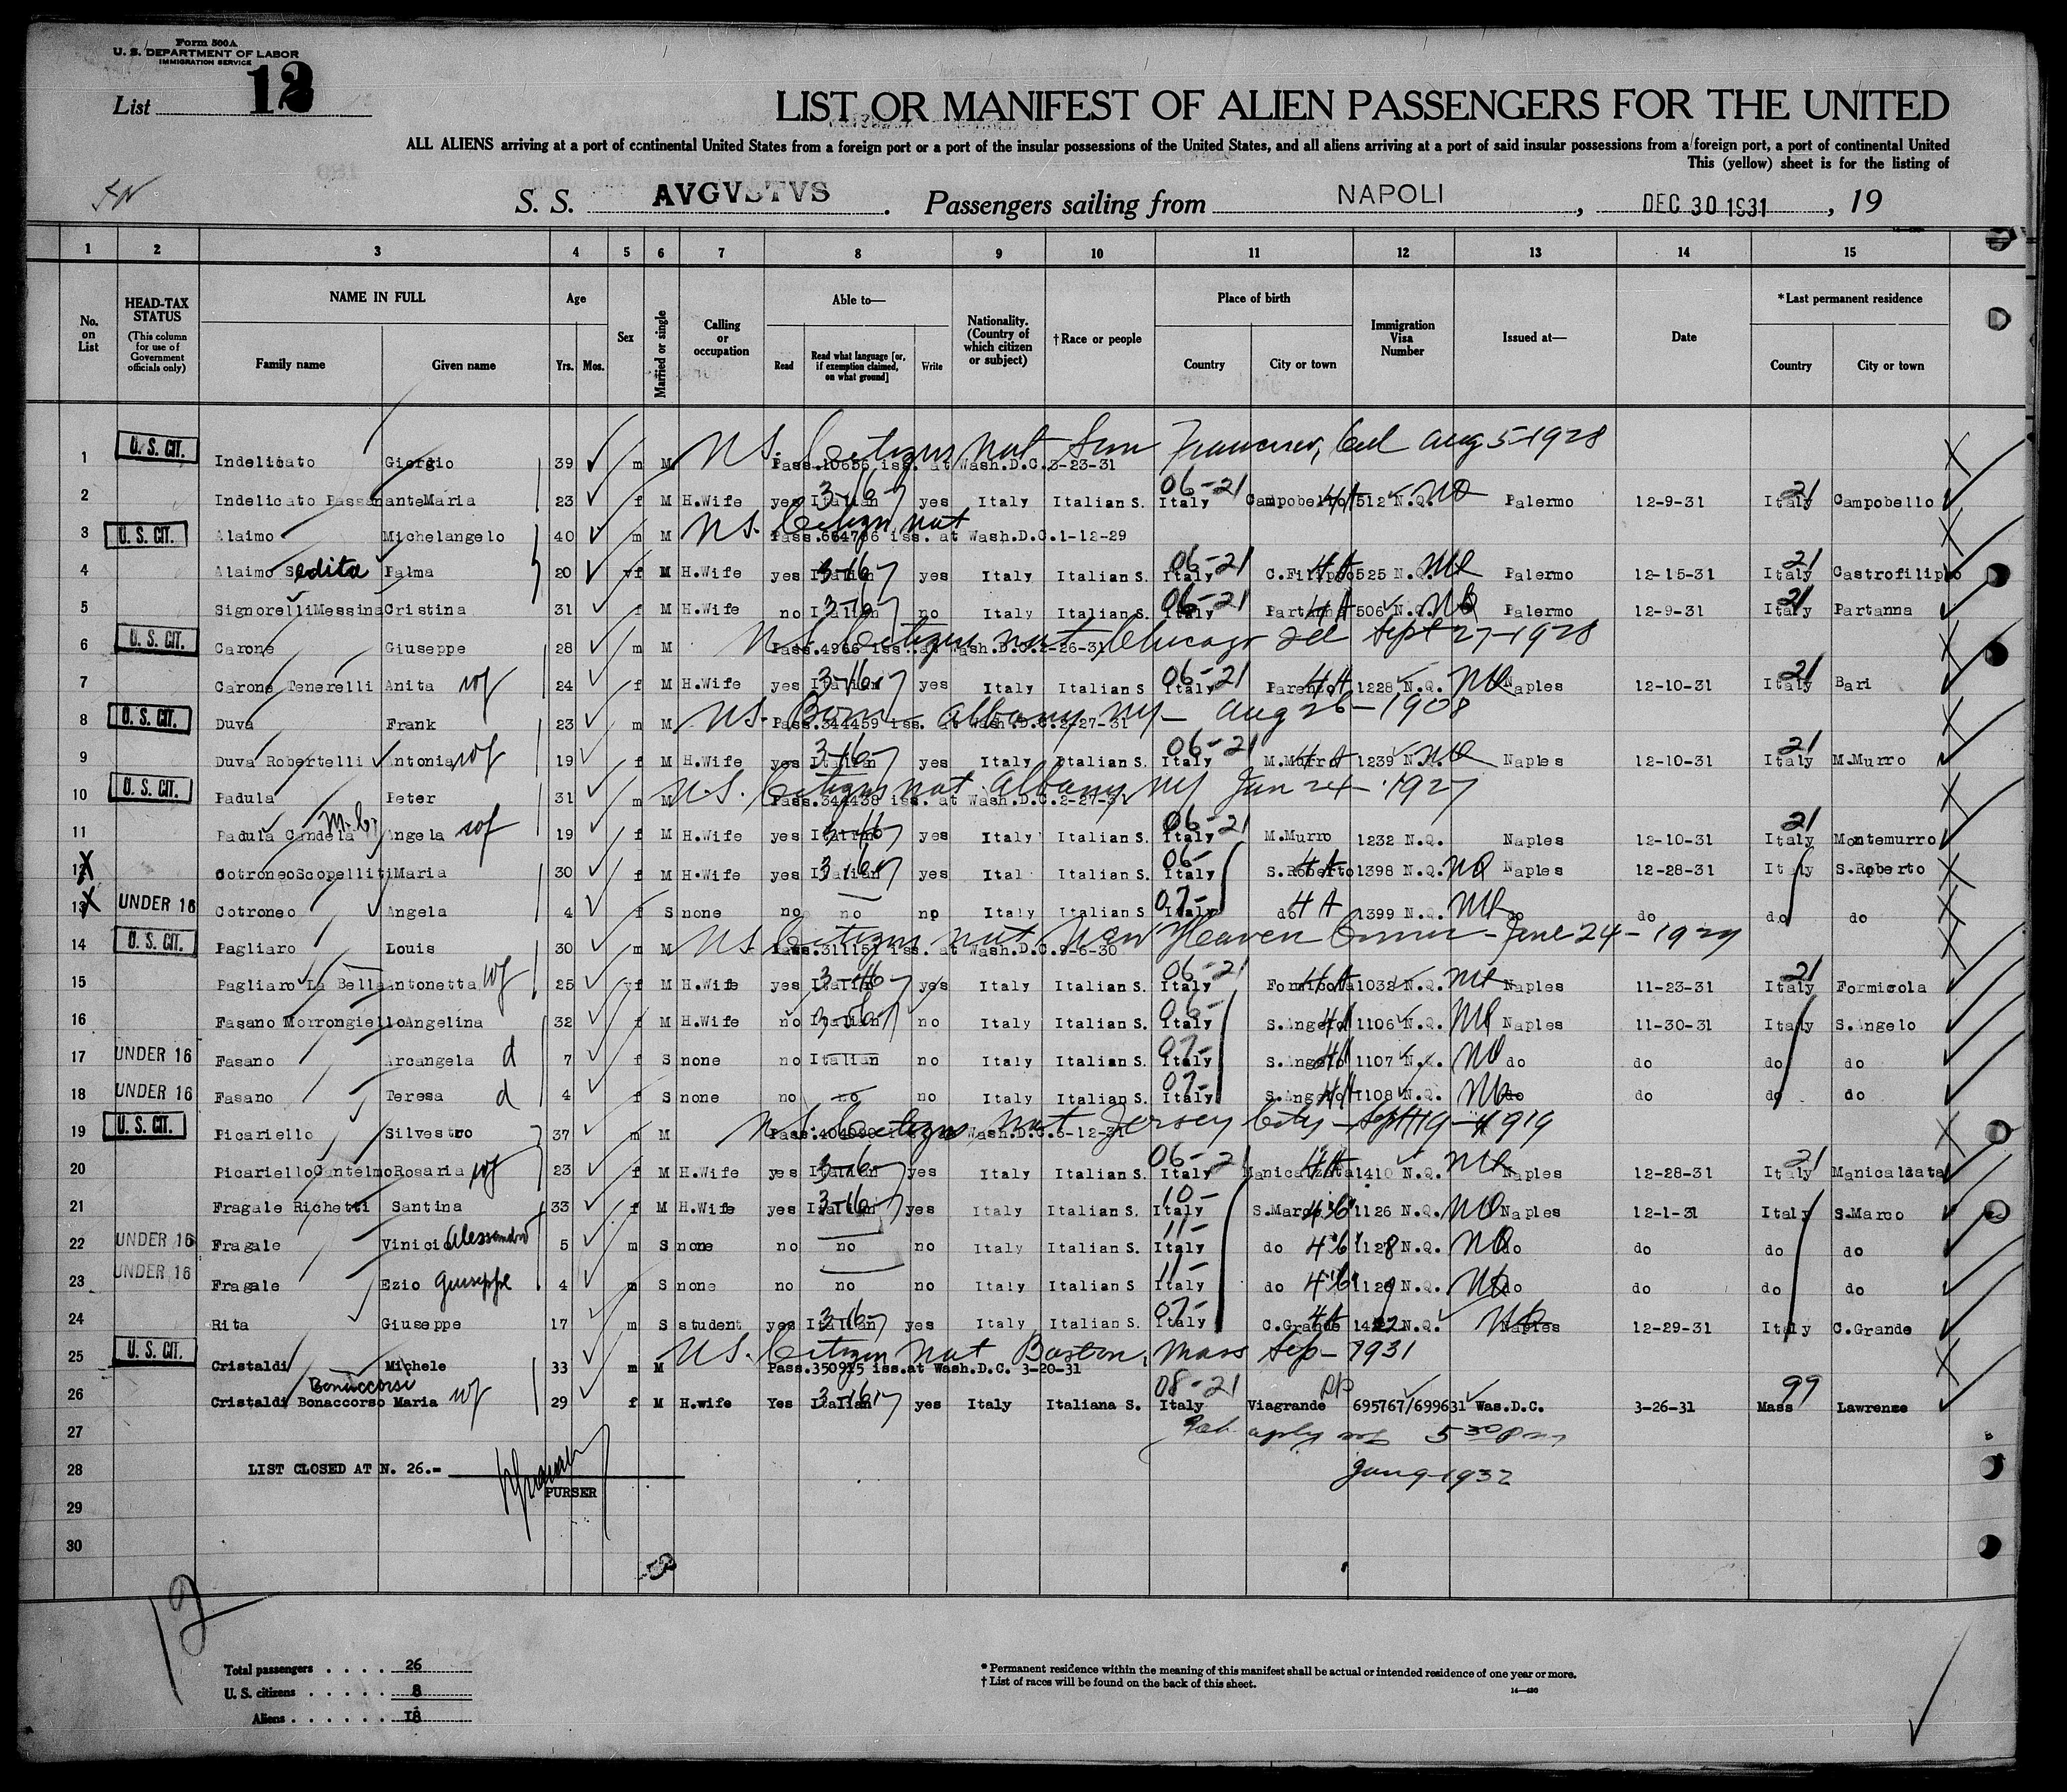 Form 500A
U. S. DEPARTMENT OF LABOR
IMMIGRATION SERVICE
List 12
LIST OR MANIFEST OF ALIEN PASSENGERS FOR THE UNITED
ALL ALIENS arriving at a port of continental United States from a foreign port or a port of the insular possessions of the United States, and all aliens arriving at a port of said insular possessions from a foreign port, a port of continental United
This (yellow) sheet is for the listing of
S. S. AVGVSTVS. Passengers sailing from NAPOLI, DEC 30 1931, 19
1 2 3 4 5 6 7 8 9 10 11 12 13 14 15
No. on List
HEAD-TAX STATUS (This column for use of Government officials only)
NAME IN FULL Family name Given name
Age Yrs. Mos.
Sex
Married or single
Calling or occupation
Able to— Read Read what language [or, if exemption claimed, on what ground] Write
Nationality. (Country of which citizen or subject)
†Race or people
Place of birth Country City or town
Immigration Visa Number
Issued at—
Date
*Last permanent residence Country City or town
1 U. S. CIT. Indelicato Giorgio 39 m M U.S. Citizen nat San Francisco, Cal Aug 5-1928 Pass.10656 iss. at Wash.D.C.3-23-31
2 Indelicato PassananteMaria 23 f M H.Wife yes Italian yes Italy Italian S. Italy 06-21 Campobello 512 N.Q. Palermo 12-9-31 Italy 21 Campobello
3 U. S. CIT. Alaimo Michelangelo 40 m M U.S. Citizen nat Pass.664786 iss. at Wash.D.C.1-12-29
4 Alaimo Sedita Palma 20 f M H.Wife yes Italian yes Italy Italian S. Italy 06-21 C.Filippo 525 N.Q. Palermo 12-15-31 Italy 21 Castrofilippo
5 SignorelliMessinaCristina 31 f M H.Wife no Italian no Italy Italian S. Italy 06-21 Partanna 506 N.Q. Palermo 12-9-31 Italy 21 Partanna
6 U. S. CIT. Carone Giuseppe 28 m M U.S. Citizen nat Chicago Ill Sept 27-1928 Pass.4966 iss. at Wash.D.C.2-26-31
7 Carone Tenerelli Anita wf 24 f M H.Wife yes Italian yes Italy Italian S Italy 06-21 1228 N.Q. Naples 12-10-31 Italy 21 Bari
8 U. S. CIT. Duva Frank 23 m M U.S. Born Albany NY- Aug 26-1908 Pass.344459 iss. at Wash.D.C.2-27-31
9 Duva Robertelli Antonia wf 19 f M H.Wife yes Italian yes Italy Italian S. Italy 06-21 M.Murro 1239 N.Q. Naples 12-10-31 Italy 21 M.Murro
10 U. S. CIT. Padula Peter 31 m M U.S. Citizen nat Albany NY Jan 24-1927 Pass.344438 iss. at Wash.D.C.2-27-31
11 Padula Candela Angela wf 19 f M H.Wife yes Italian yes Italy Italian S. Italy 06-21 M.Murro 1232 N.Q. Naples 12-10-31 Italy 21 Montemurro
12 CotroneoScopellitiMaria 30 f M H.Wife yes Italian yes Ital Italian S. Italy 06- S.Roberto 1398 N.Q. Naples 12-28-31 Italy S.Roberto
13 UNDER 16 Cotroneo Angela 4 f S none no no no Italy Italian S Italy 07- do 1399 N.Q. do do do do
14 U. S. CIT. Pagliaro Louis 30 m M U.S. Citizen nat New Heaven Conn- June 24-1929 Pass.311151 iss. at Wash.D.C.9-6-30
15 Pagliaro La BellaAntonetta wf 25 f M H.Wife yes Italian yes Italy Italian S. Italy 06-21 Formicola 1032 N.Q. Naples 11-23-31 Italy 21 Formicola
16 Fasano MorrongielloAngelina 32 f M H.Wife no Italian no Italy Italian S. Italy 06- S.Angelo 1106 N.Q. Naples 11-30-31 Italy S.Angelo
17 UNDER 16 Fasano Arcangela d 7 f S none no Italian no Italy Italian S. Italy 07- S.Angelo 1107 N.Q. do do do do
18 UNDER 16 Fasano Teresa d 4 f S none no no no Italy Italian S. Italy 07- S.Angelo 1108 N.Q. do do do do
19 U. S. CIT. Picariello Silvestro 37 m M U.S. Citizen nat Jersey City-Sept 19-1919 Wash.D.C.5-12-31
20 PicarielloCantelmoRosaria wf 23 f M H.Wife yes Italian yes Italy Italian S. Italy 06-21 Manicalzata 1410 N.Q. Naples 12-28-31 Italy 21 Manicalzata
21 Fragale Richetti Santina 33 f M H.Wife yes Italian yes Italy Italian S. Italy 10- S.Marco 1126 N.Q. Naples 12-1-31 Italy S.Marco
22 UNDER 16 Fragale Vinicio Alessandro 5 m S none no no no Italy Italian S. Italy 11- do 1128 N.Q. do do do do
23 UNDER 16 Fragale Ezio Giuseppe 4 m S none no no no Italy Italian S. Italy 11- do 1129 N.Q. do do do do
24 Rita Giuseppe 17 m S student yes Italian yes Italy Italian S. Italy 07- C.Grande 1422 N.Q. Naples 12-29-31 Italy C.Grande
25 U. S. CIT. Cristaldi Michele 33 m M U.S. Citizen nat Boston, Mass Sep- 1931 Pass.350925 iss.at Wash.D.C. 3-20-31
Bonaccorsi
26 Cristaldi Bonaccorso Maria wf 29 f M H.wife Yes Italian yes Italy Italiana S. Italy 08-21 Viagrande 695767/699631 Was.D.C. 3-26-31 Mass 99 Lawrense
27 5 30 Pm
28 LIST CLOSED AT N. 26.= Jan 9-1932
PURSER
29
30
12
Total passengers . . . . 26
U. S. citizens . . . . . 8
Aliens . . . . . . 18
* Permanent residence within the meaning of this manifest shall be actual or intended residence of one year or more.
† List of races will be found on the back of this sheet.